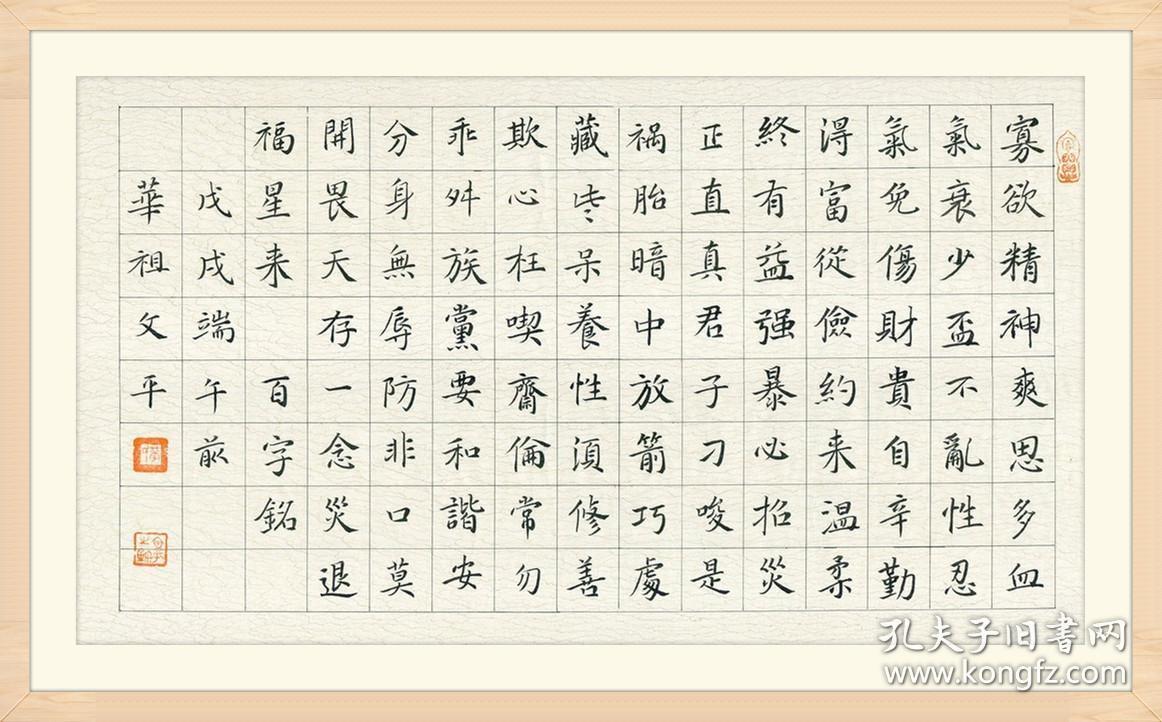 寡欲精神爽思多血
氣衰少盃不亂性忍
氣免傷財貴自辛勤
淂富從儉約来温柔
終有益强暴必招災
正直真君子刁唆是
祸胎暗中放箭巧處
藏些呆養性須修善
欺心枉喫齋倫常勿
乖舛族黨要和諧安
分身無辱防非口莫
開畏天存一念災退
福星来 百字銘
戊戌端午前
華祖文平
孔夫子旧書网
www.kongfz.com